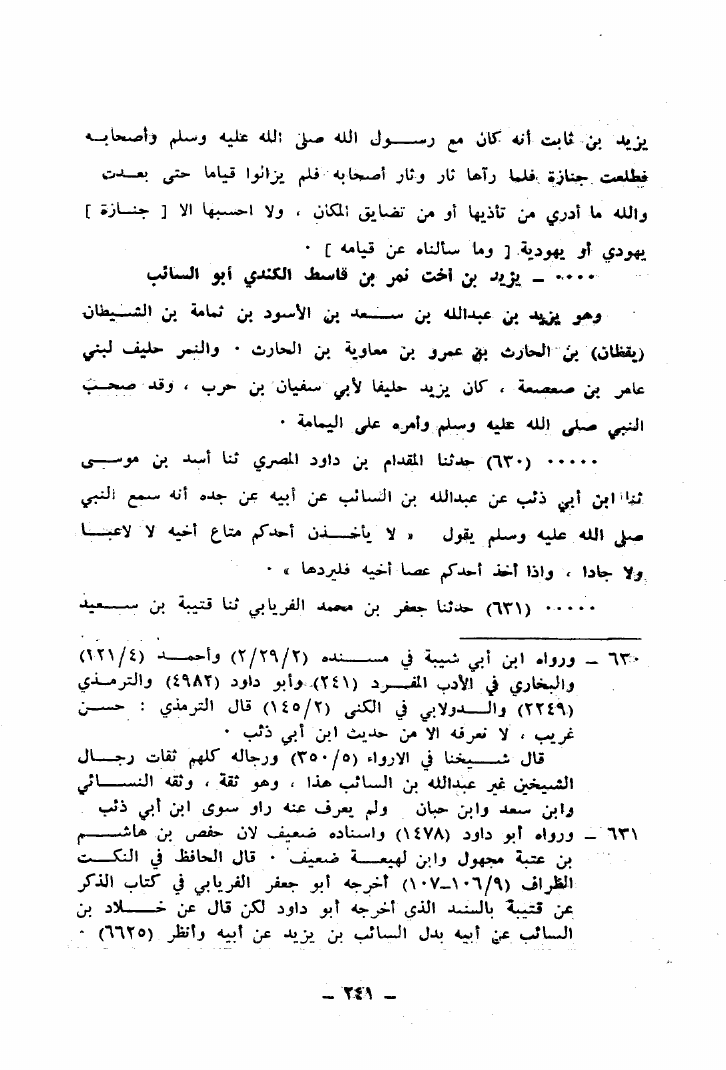 يزيد بن ثابت أنه كان مع رسول الله صلى الله عليه وسلم وأصحابه
فطلعت جنازة فلما رآها ثار وثار أصحابه فلم يزالوا قياما حتى بعدت
والله ما أدري من تأذيها أو من تضايق المكان ، ولا احسبها الا [ جنازة ]
يهودي أو يهودية [ وما سألناه عن قيامه ] ٠
٠٠٠٠ ــ يزيد بن أخت نمر بن قاسط الكندي أبو السائب
وهو يزيد بن عبدالله بن سعد بن الأسود بن ثمامة بن الشيطان
(يقظان) بن الحارث بن عمرو بن معاوية بن الحارث ٠ والنمر حليف لبني
عامر بن صعصعة ، كان يزيد حليفا لأبي سفيان بن حرب ، وقد صحب
النبي صلى الله عليه وسلم وأمره على اليمامة ٠
٠٠٠٠٠ (٦٣٠) حدثنا المقدام بن داود المصري ثنا أسد بن موسى
ثنا ابن أبي ذئب عن عبدالله بن السائب عن أبيه عن جده أنه سمع النبي
صلى الله عليه وسلم يقول « لا يأخذن أحدكم متاع أخيه لا لاعبا
ولا جادا ، واذا أخذ أحدكم عصا أخيه فليردها » ٠
٠٠٠٠٠ (٦٣١) حدثنا جعفر بن محمد الفريابي ثنا قتيبة بن سعيد
٦٣٠ ــ ورواه ابن أبي شيبة في مسنده (٢/٢٩/٢) وأحمد (١٢١/٤)
والبخاري في الأدب المفرد (٢٤١) وأبو داود (٤٩٨٢) والترمذي
(٢٢٤٩) والدولابي في الكنى (١٤٥/٢) قال الترمذي : حسن
غريب ، لا نعرفه الا من حديث ابن أبي ذئب ٠
قال شيخنا في الارواء (٣٥٠/٥) ورجاله كلهم ثقات رجال
الشيخين غير عبدالله بن السائب هذا ، وهو ثقة ، وثقه النسائي
وابن سعد وابن حبان ولم يعرف عنه راو سوى ابن أبي ذئب
٦٣١ ــ ورواه أبو داود (١٤٧٨) واسناده ضعيف لان حفص بن هاشم
بن عتبة مجهول وابن لهيعة ضعيف ٠ قال الحافظ في النكت
الظراف (١٠٦/٩ــ١٠٧) أخرجه أبو جعفر الفريابي في كتاب الذكر
عن قتيبة بالسند الذي أخرجه أبو داود لكن قال عن خلاد بن
السائب عن أبيه بدل السائب بن يزيد عن أبيه وأنظر (٦٦٢٥) ٠
ــ ٢٤١ ــ